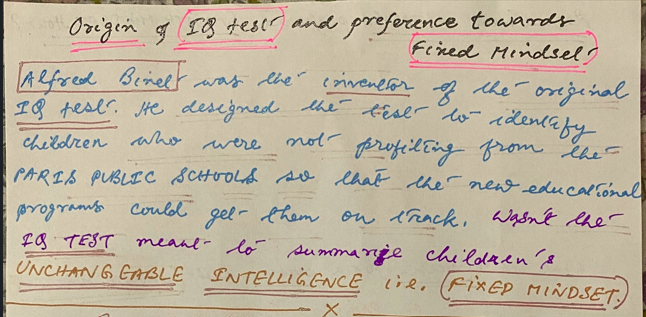 Origin of IQ test and preference towards
Fixed Mindset
Alfred Binet was the inventor of the original
IQ test. He designed the test to identify
children who were not profiting from the
PARIS PUBLIC SCHOOLS so that the new educational
programs could get them on track. Wasn't the
IQ TEST meant to summarize children's
UNCHANGEABLE INTELLIGENCE i.e. FIXED MINDSET.
X